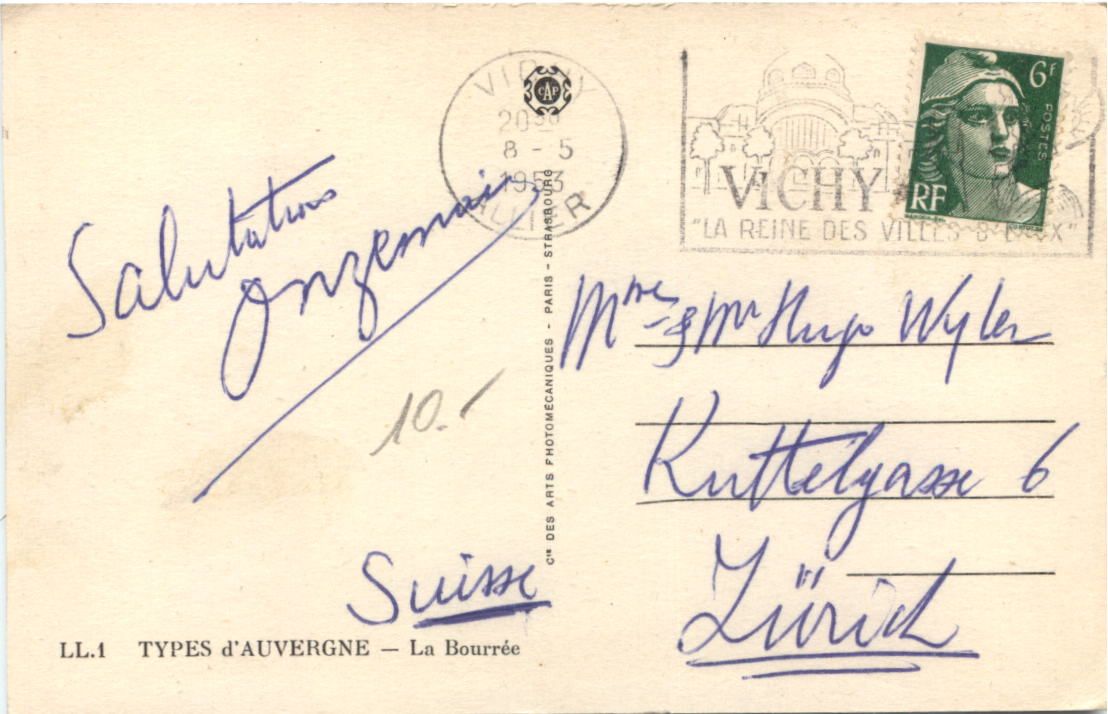 VICHY
CAP
20
8 - 5
1953
ALLIER
VICHY
"LA REINE DES VILLES D'EAUX"
6F
POSTES
RF
Salutations
Mme & Mr Hugo Wyler
Kuttelgasse 6
Zürich
Suisse
10.-
Cie DES ARTS PHOTOMÉCANIQUES - PARIS - STRASBOURG
LL.1 TYPES d'AUVERGNE — La Bourrée